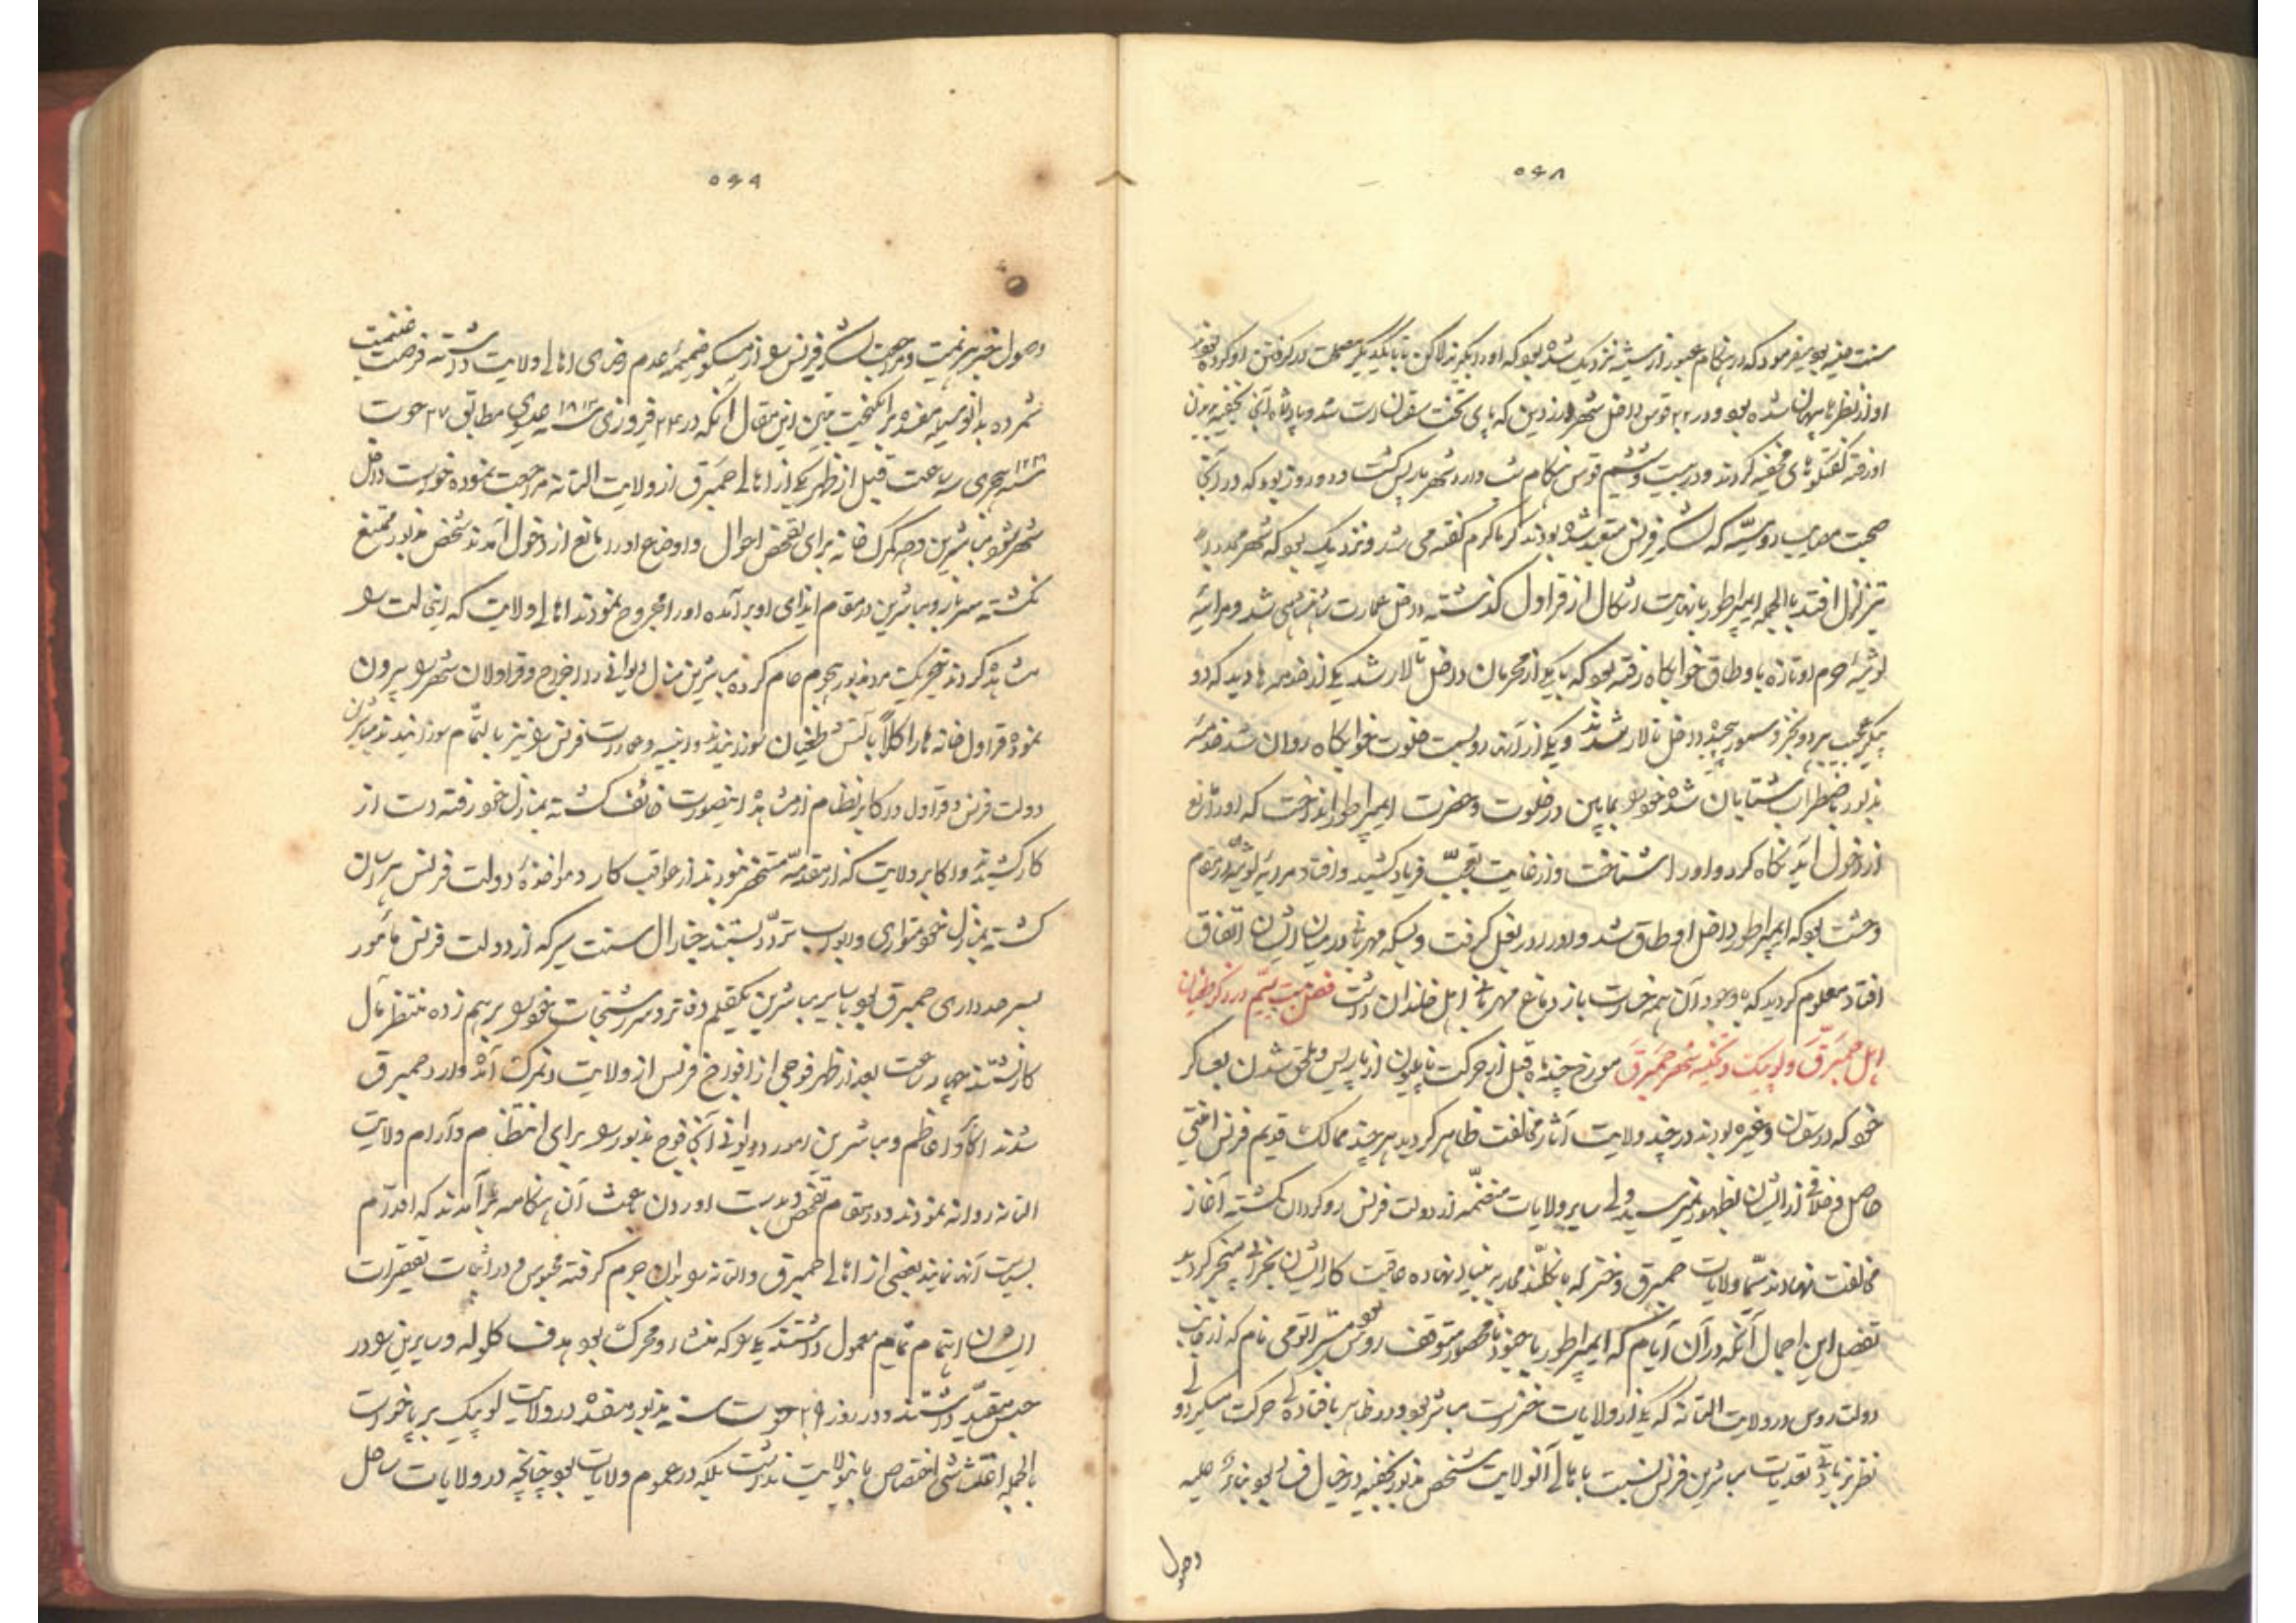 ۵۶۸
سنت منیه بود میفرمود که در هنگام عبور از رشیه نزدیک شده بود که او را بگیرند لاکن تا با یکدیگر مصلحت در گرفتن او کردند
او از نظرها پنهان شده بود و در ۲۲ قوس داخل شهر درزدین که پای تخت سقسان است شد و با پادشاه آنجا بخفیه بیرون
او رفته گفتگوهای مخفیه کردند و در بیست و ششم قوس هنگام شب وارد شهر پاریس گشت و دو روز بود که در آنجا
صحبت مصایب روسیه که لشکر فرنس متعبد شده بودند گرماگرم گفته می شد و نزدیک بود که شهر
تزلزل افتد بالجمله ایمپراطور با نهایت اشکال از قراول گذشته داخل عمارت شاهنشاهی شد و میرائیه
لوئیزه حرم او تازه باوطاق خوابگاه رفته بود که با یکی از محرمان داخل تالار شد یکی از خدمه ها دید که دو
پیکر عجیب بیرد و بخز و سمور پیچیده داخل تالار شدند و یکی از آنها رو بسمت خلوت خوابگاه روان شد خدمه
مذبور باضطراب شتابان شده خود را بمابین در خلوت و حضرت ایمپراطور انداخت که او را مانع
از دخول آید نگاه کرد و او را شناخت و از غایت تعجب فریاد کشید و افتاد میرائیه لوئیزه در مقام
وحشت بود که ایمپراطور داخل اوطاق شد و او را در بغل گرفت و بسکه مهربانی در میان ایشان اتفاق
افتاد معلوم گردید که باوجود آن همه خسارت باز دماغ مهربانی اهل خاندان داشت فصل بیستم در ذکر طغیان
اهل حمبرق و لوبیک و تخلیه شهر حمبرق مورخ چند ماه قبل از حرکت ناپلیون از پاریس و ملحق شدن بعساکر
خود که در سقسان و غیره بودند در چند ولایت آثار مخالفت ظاهر گردید هر چند ممالک قدیم فرنس افتی
حاصل و خلافی از ایشان بظهور نمیرسید ولی سایر ولایات منضمه از دولت فرنس روگردان گشته آغاز
مخالفت نهادند سیما ولایات حمبرق و غیره که با انگلند محاربه بنیاد نهاده عاقبت کار ایشان بخرابی منجر گردید
تفصیل این اجمال آنکه در آن ایام که ایمپراطور با جنود نامحصور متوقف روس بود مستر اتومی نام که از جانب
دولت روس در ولایت التانه که یکی از ولایات است مباشر بود و در ظاهر بافتادگی حرکت میکرد و
نظر بزیادتی تعدیات مباشرین فرنس نسبت باهالی آنولایت شخص مذبور بخفیه در خیال فساد بود بناء علیه
وصول
۵۶۹
وصول خبر هزیمت و مراجعت لشکر فرنس را از مسکو ضمیمه عدم رضای اهالی ولایت دانسته فرصت غنیمت
شمرده بدانوسیله مفسده برانگیخت تبیین این مقال آنکه در ۲۴ فبروزی سنه ۱۸۱۳ عیسوی مطابق ۲۷ حوت
سنه هجری سه ساعت قبل از ظهر یکی از اهالی حمبرق از ولایت التانه مراجعت نموده خواست داخل
شهر شود مباشرین و عمله گمرک خانه برای تفحص احوال و اوضاع او را مانع از دخول آمدند شخص مذبور ممتنع
نگشته سرباز و مباشرین در مقام ایذای او برآمده او را مجروح نمودند اهالی ولایت که اینحالت را
مشاهده کردند بتحریک مرد مذبور هجوم عام کرده مباشرین منال دیوانی را اخراج و قراولان شهر را بیرون
نموده قراول خانه ها را کلاً بآتش طغیان سوزانیدند و ابنیه و عمارت فرنس را نیز بالتمام سوزانیدند مباشرین
دولت فرنس و قراول و رکاب نظام از مشاهده اینصورت خائف گشته بمنازل خود رفته دست از
کار کشیدند و اکابر ولایت که از مقدمه مستحضر نبودند از عواقب کار و مواخذه دولت فرنس هراسان
گشته بمنازل خود متواری و ابواب تردد بستند جنارال سنت سیر که از دولت فرنس مأمور
بسرحدداری حمبرق بود با سایر مباشرین یکقلم دفاتر و سررشتجات خود را برهم زده منتظر مآل
کار نشستند چهار ساعت بعد از ظهر فوجی از افواج فرنس از ولایت دنمرک آمده وارد حمبرق
شدند اکابر و اعاظم و مباشرین امور دیوانی آنجا فوج مذبور را برای انتظام و آرام ولایت
التانه روانه نمودند و در مقام تفحص و بدست آوردن باعث آن هنگامه برآمدند که اقدام
بسیاست آنها نمایند بعضی از اهالی حمبرق و التانه را بدان جرم گرفته محبوس و در اثبات تقصیرات
ایشان اهتمام تمام معمول داشتند یکی را که منشاء و محرک بود هدف گلوله و سایرین را در
حبس مقید داشتند و در روز ۲۹ حوت سنه مذبور مفسده در ولایت لوبیک برپا خواست
بالجمله اغتشاش اختصاص باینولایت نداشت بلکه در عموم ولایات بود چنانچه در ولایات ساحل